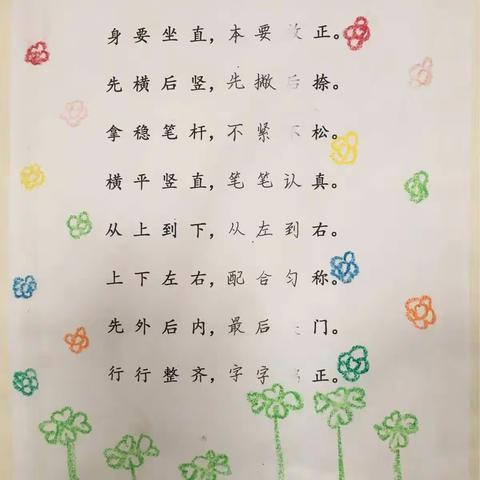 身要坐直，本要放正。
先横后竖，先撇后捺。
拿稳笔杆，不紧不松。
横平竖直，笔笔认真。
从上到下，从左到右。
上下左右，配合匀称。
先外后内，最后关门。
行行整齐，字字正。